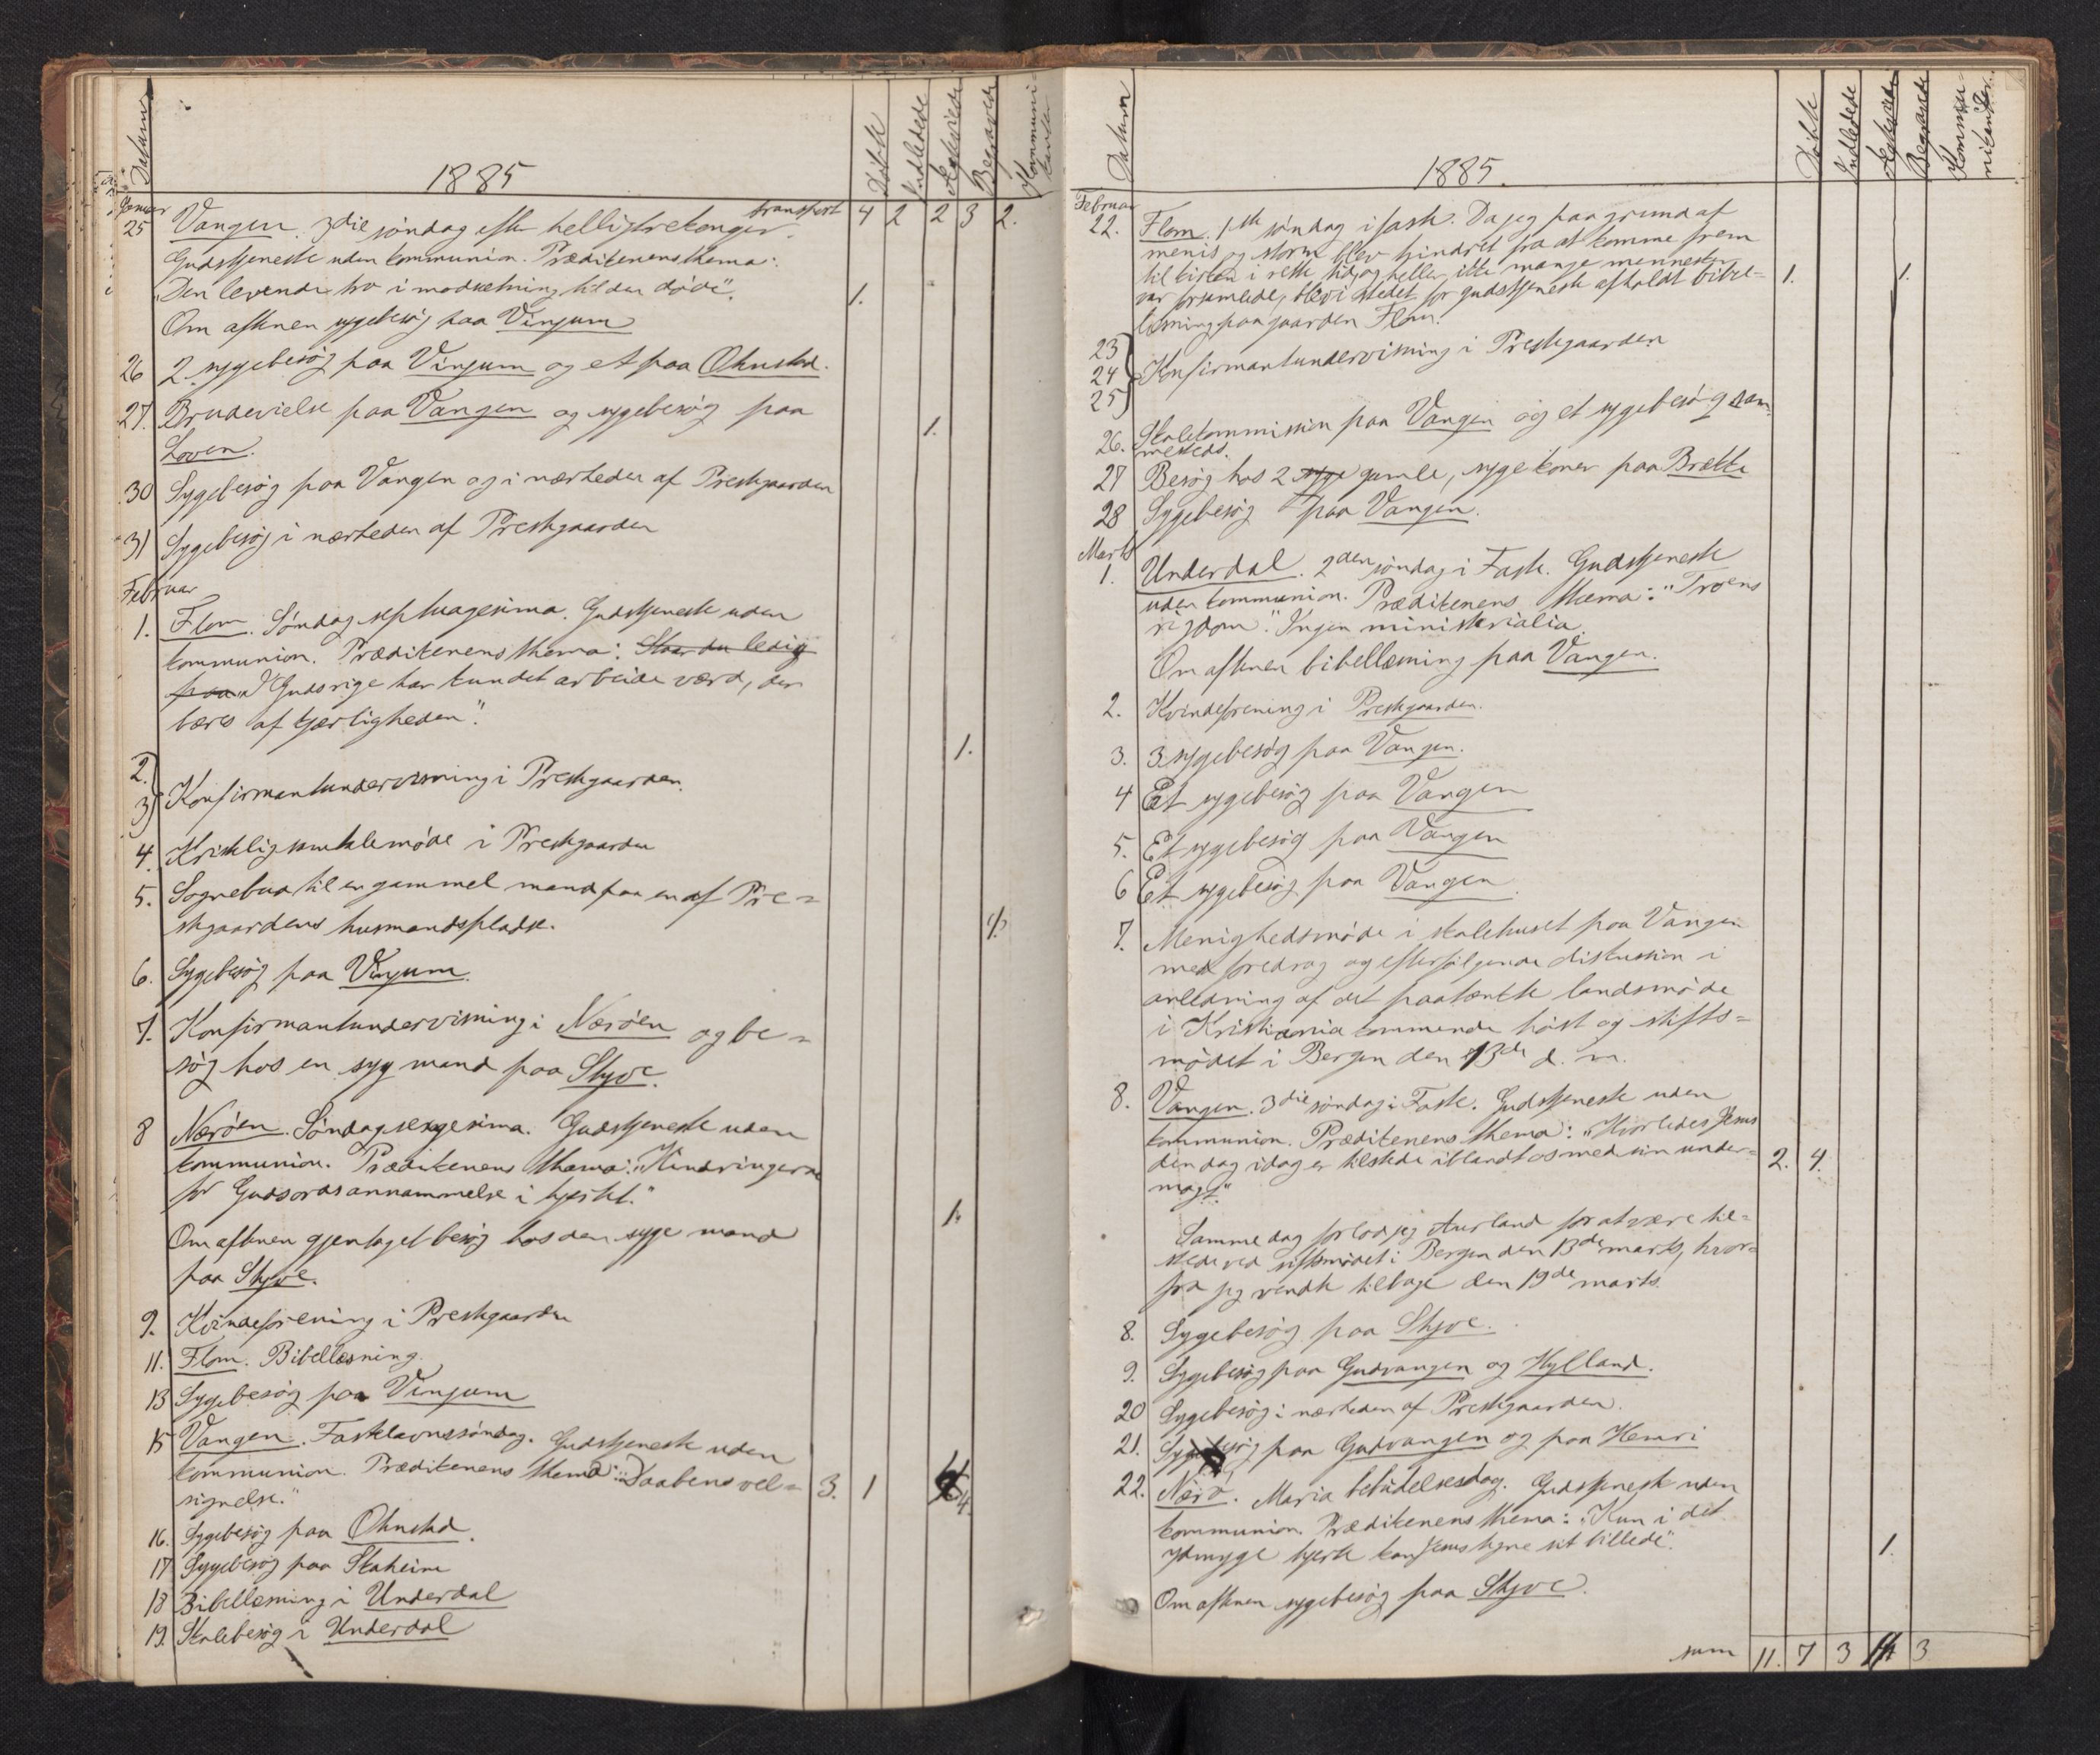 Datum
1885
Döbte
Indledede
Ægteviede
Begravede
Kommunikanter
Januar transport 4 2 2 3 2.
25 Vangen. 3die söndag efter helligtrekonger.
Gudstjeneste uden kommunion. Prædikenens thema:
"Den levende tro i modsætning til den döde". 1.
Om aftenen sygebesög paa Vinjum
26 2 sygebesög paa Vinjum og et paa Ohnstad.
27. Brudevielse paa Vangen og sygebesög paa 1.
Loven.
30 Sygebesög paa Vangen og i nærheden af Prestgaarden
31 Sygebesög i nærheden af Prestgaarden
Februar
1. Flom. Söndag septuagesima. Gudstjeneste uden
kommunion. Prædikenens thema: Staar du ledig
paa "I Gudsrige har kun det arbeide værd, der
bæres af kjærligheden". 1.
2.
3) Konfirmantundervisning i Prestgaarden.
4. Kristelig samtalemöde i Prestgaarden
5. Sognebud til en gammel mand paa en af Pre=
stgaardens husmandspladse. 1.
6. Sygebesög paa Vinjum.
7. Konfirmantundervisning i Næröen og be=
sög hos en syg mand paa Styve.
8 Næröen. Söndag sexagesima. Gudstjeneste uden
kommunion. Prædikenens thema: "Hindringerne
for Gudsords annammelse i hjertet." 1.
Om aftenen gjentaget besög hos den syge mand
paa Styve.
9. Kvindeforening i Prestgaarden
11. Flom. Bibellæsning.
13 Sygebesög paa Vinjum
15 Vangen. Fastelavnssöndag. Gudstjeneste uden
kommunion. Prædikenens thema: "Daabens vel= 3. 1 4.
signelse."
16. Sygebesög paa Ohnstad.
17 Sygebesög paa Staheim
18 Bibellæsning i Underdal
19. Skolebesög i Underdal
Datum
1885.
Döbte
Indledede
Ægteviede
Begravede
Kommunikanter.
Februar
22. Flom. 1ste söndag i faste. Da jeg paa grund af
menis og storm blev hindret fra at komme frem
til kirken i rette tid, og heller ikke mange mennesker
var forsamlede, blev i stedet for gudstjeneste afholdt bibel= 1. 1.
læsning paa gaarden Flom.
23
24 Konfirmantundervisning i Prestgaarden
25
26. Skolekommission paa Vangen og et sygebesög sam=
mesteds.
27 Besög hos 2 syge gamle, syge koner paa Brekke
28 Sygebesög paa Vangen.
Marts
1. Underdal. 2den söndag i Faste. Gudstjeneste
uden kommunion. Prædikenens thema: "Troens
rigdom". Ingen ministerialia.
Om aftenen bibellæsning paa Vangen.
2. Kvindeforening i Prestgaarden.
3. 3 sygebesög paa Vangen.
4 Et sygebesög paa Vangen
5. Et sygebesög paa Vangen
6 Et sygebesög paa Vangen.
7. Menighedsmöde i skolehuset paa Vangen
med foredrag og efterfölgende diskussion i
anledning af det paatænkte landsmöde
i Kristiania kommende höst og stifts=
mödet i Bergen den 13de d. m.
8. Vangen. 3die söndag i Faste. Gudstjeneste uden
kommunion. Prædikenens thema: "Hvorledes Jesus
den dag idag er tilstede iblandt os med sin under= 2. 4.
magt."
Samme dag forlod jeg Aurland for at være til=
stede ved stiftsmödet i Bergen den 13de marts, hvor=
fra jeg vendte tilbage den 19de marts.
8. Sygebesög paa Styve.
9. Sygebesög paa Gudvangen og Hylland.
20 Sygebesög i nærheden af Prestgaarden.
21. Sygebesög paa Gudvangen og paa Hemri
22. Nærö. Maria bebudelsesdag. Gudstjeneste uden
kommunion. Prædikenens thema: "Kun i det
ydmyge hjerte kan Jesus tegne sit billede". 1.
Om aftenen sygebesög paa Styve.
sum 11. 7 3 3